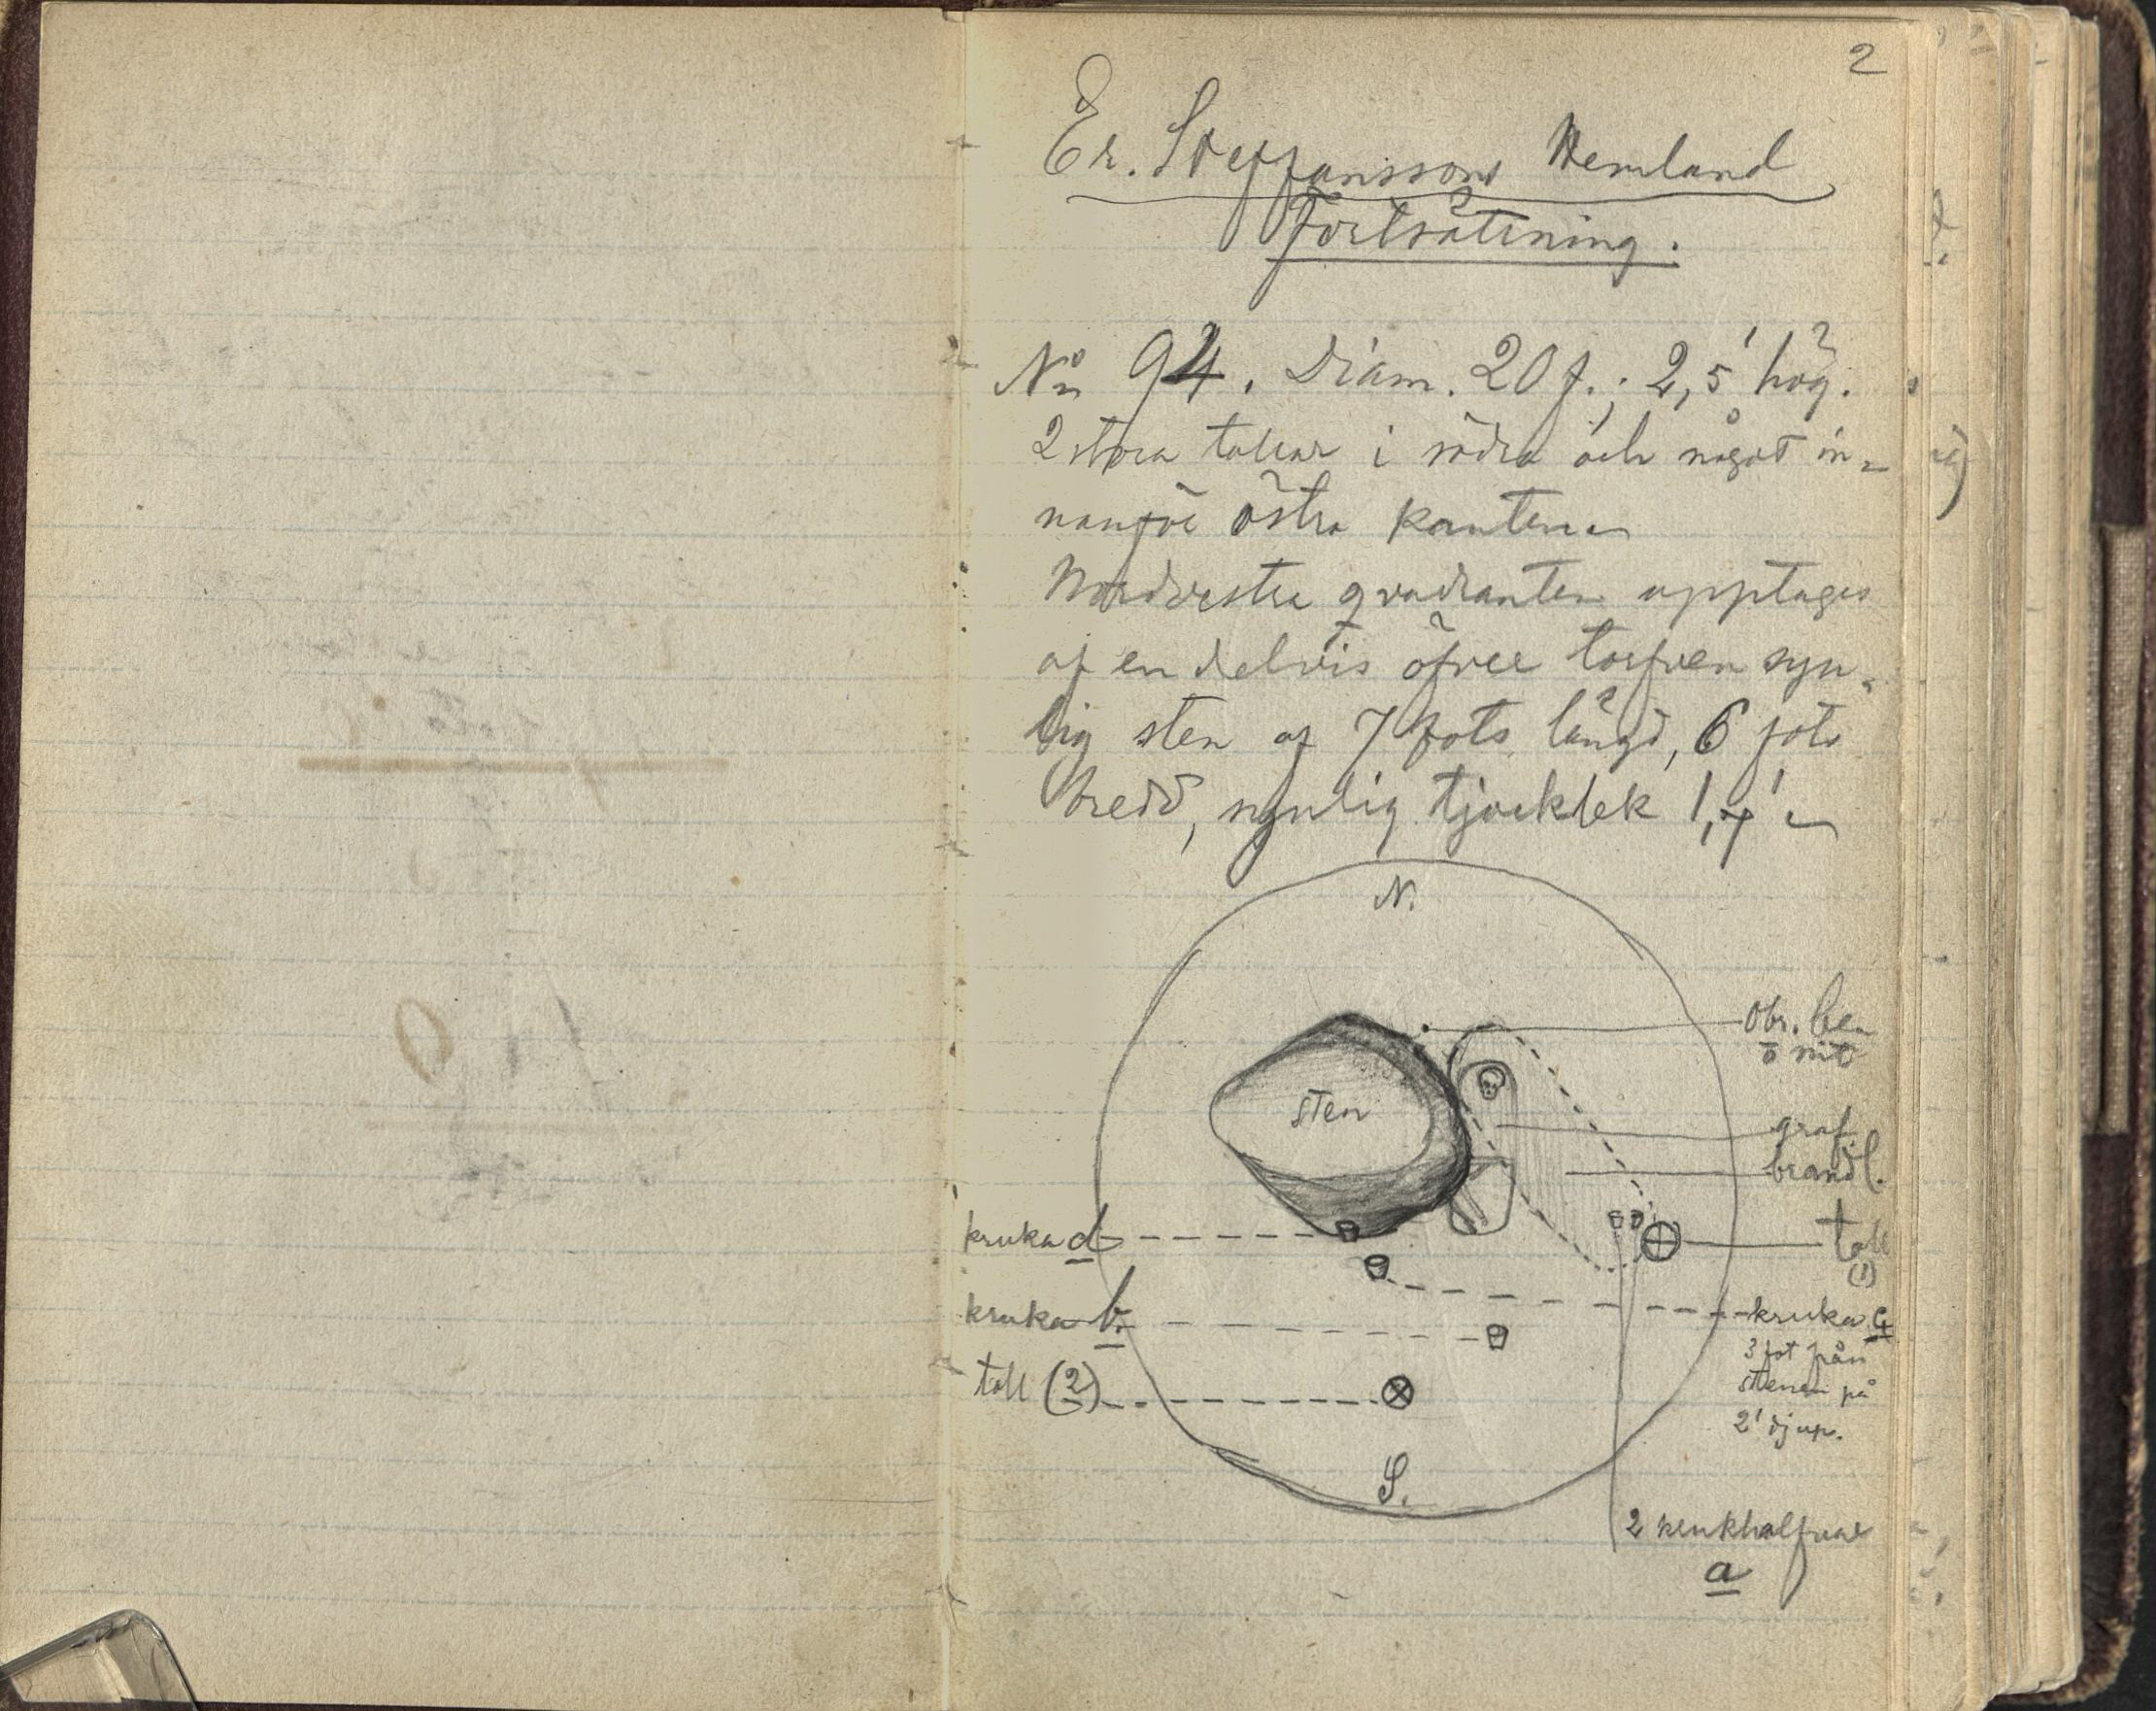 2
Er. Steffanssons Hemland
Fortsättning.
No 94. Diam. 20 f.; 2,5' hög.
2 stora tallar i södra och något in-
nanför östra kanten.
Nordvestra qvadranten upptages
af en delvis öfver torfven syn-
lig sten af 7 fots längd, 6 fots
bredd, synlig tjocklek 1,7'
N.
obr. ben
o nit
sten
graf
brandl.
kruka d
tall
(1)
kruka b.
kruka c
3 fot från
stenen på
2' djup.
tall (2)
S.
2 krukhalfvor
a